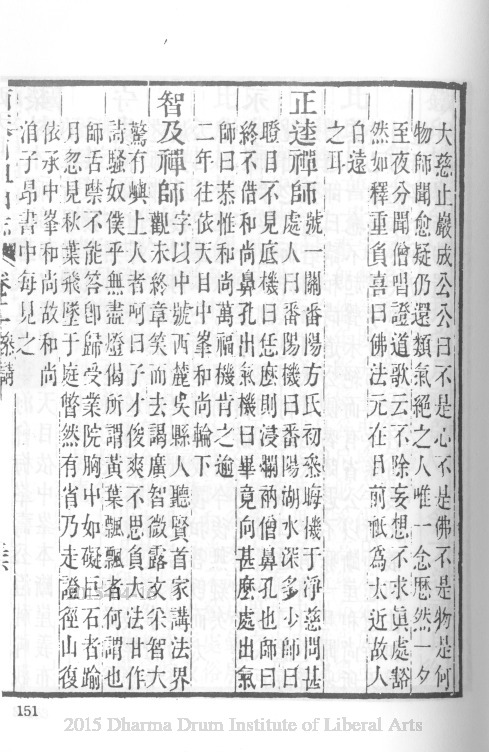 大慈止巖成公公曰不是心不是佛不是物是何
物師聞愈疑仍還類氣絕之人唯一念歷然一夕
至夜分聞僧唱證道歌云不除妄想不求眞處豁
然如釋重負喜曰佛法元在目前祇為太近故人
自遠
之耳
正逵禪師號一關番陽方氏初叅晦機于淨慈問甚
處人曰番陽機曰番陽湖水深多少師曰
瞪目不見底機曰恁麽則浸爛衲僧鼻孔也師曰
終不借和尚鼻孔出氣機曰畢竟向甚麽處出氣
師曰恭惟和尚萬福機肯之逾
二年往依天目中峯和尚輪下
智及禪師字以中號西麓吳縣人聽賢首家講法界
觀未終章笑而去謁廣智微露文采智大
驚有嶼上人者呵曰子才俊爽不思負大法甘作
詩騷奴僕乎無盡燈偈所謂黃葉飄飄者何謂也
師舌㯿不能答卽歸受業院胸中如礙巨石者踰
月忽見秋葉飛墜于庭瞥然有省乃走證徑山復
依承中峯和尚故和尚
㳙子昂書中每見之
卷二 叅請
151
2015 Dharma Drum Institute of Liberal Arts